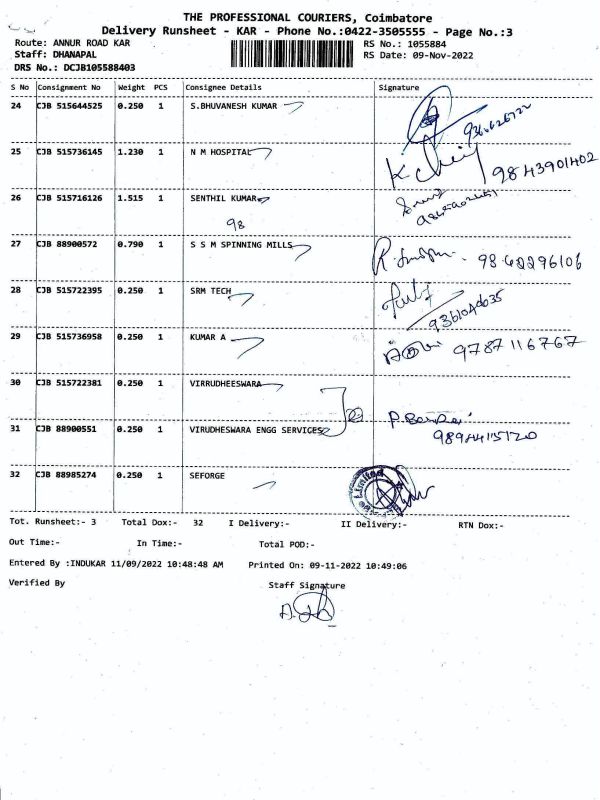 THE PROFESSIONAL COURIERS, Coimbatore
Delivery Runsheet - KAR - Phone No.:0422-3505555 - Page No.:3
Route: ANNUR ROAD KAR RS No.: 1055884
Staff: DHANAPAL RS Date: 09-Nov-2022
DRS No.: DCJB105588403
S No Consignment No Weight PCS Consignee Details Signature
24 CJB 515644525 0.250 1 S.BHUVANESH KUMAR
25 CJB 515736145 1.230 1 N M HOSPITAL
9843901402
26 CJB 515716126 1.515 1 SENTHIL KUMAR
98
27 CJB 88900572 0.790 1 S S M SPINNING MILLS
28 CJB 515722395 0.250 1 SRM TECH
29 CJB 515736958 0.250 1 KUMAR A
9787116767
30 CJB 515722381 0.250 1 VIRRUDHEESWARA
31 CJB 88900551 0.250 1 VIRUDHESWARA ENGG SERVICES
32 CJB 88985274 0.250 1 SEFORGE
Limited
Tot. Runsheet:- 3 Total Dox:- 32 I Delivery:- II Delivery:- RTN Dox:-
Out Time:- In Time:- Total POD:-
Entered By :INDUKAR 11/09/2022 10:48:48 AM Printed On: 09-11-2022 10:49:06
Verified By Staff Signature